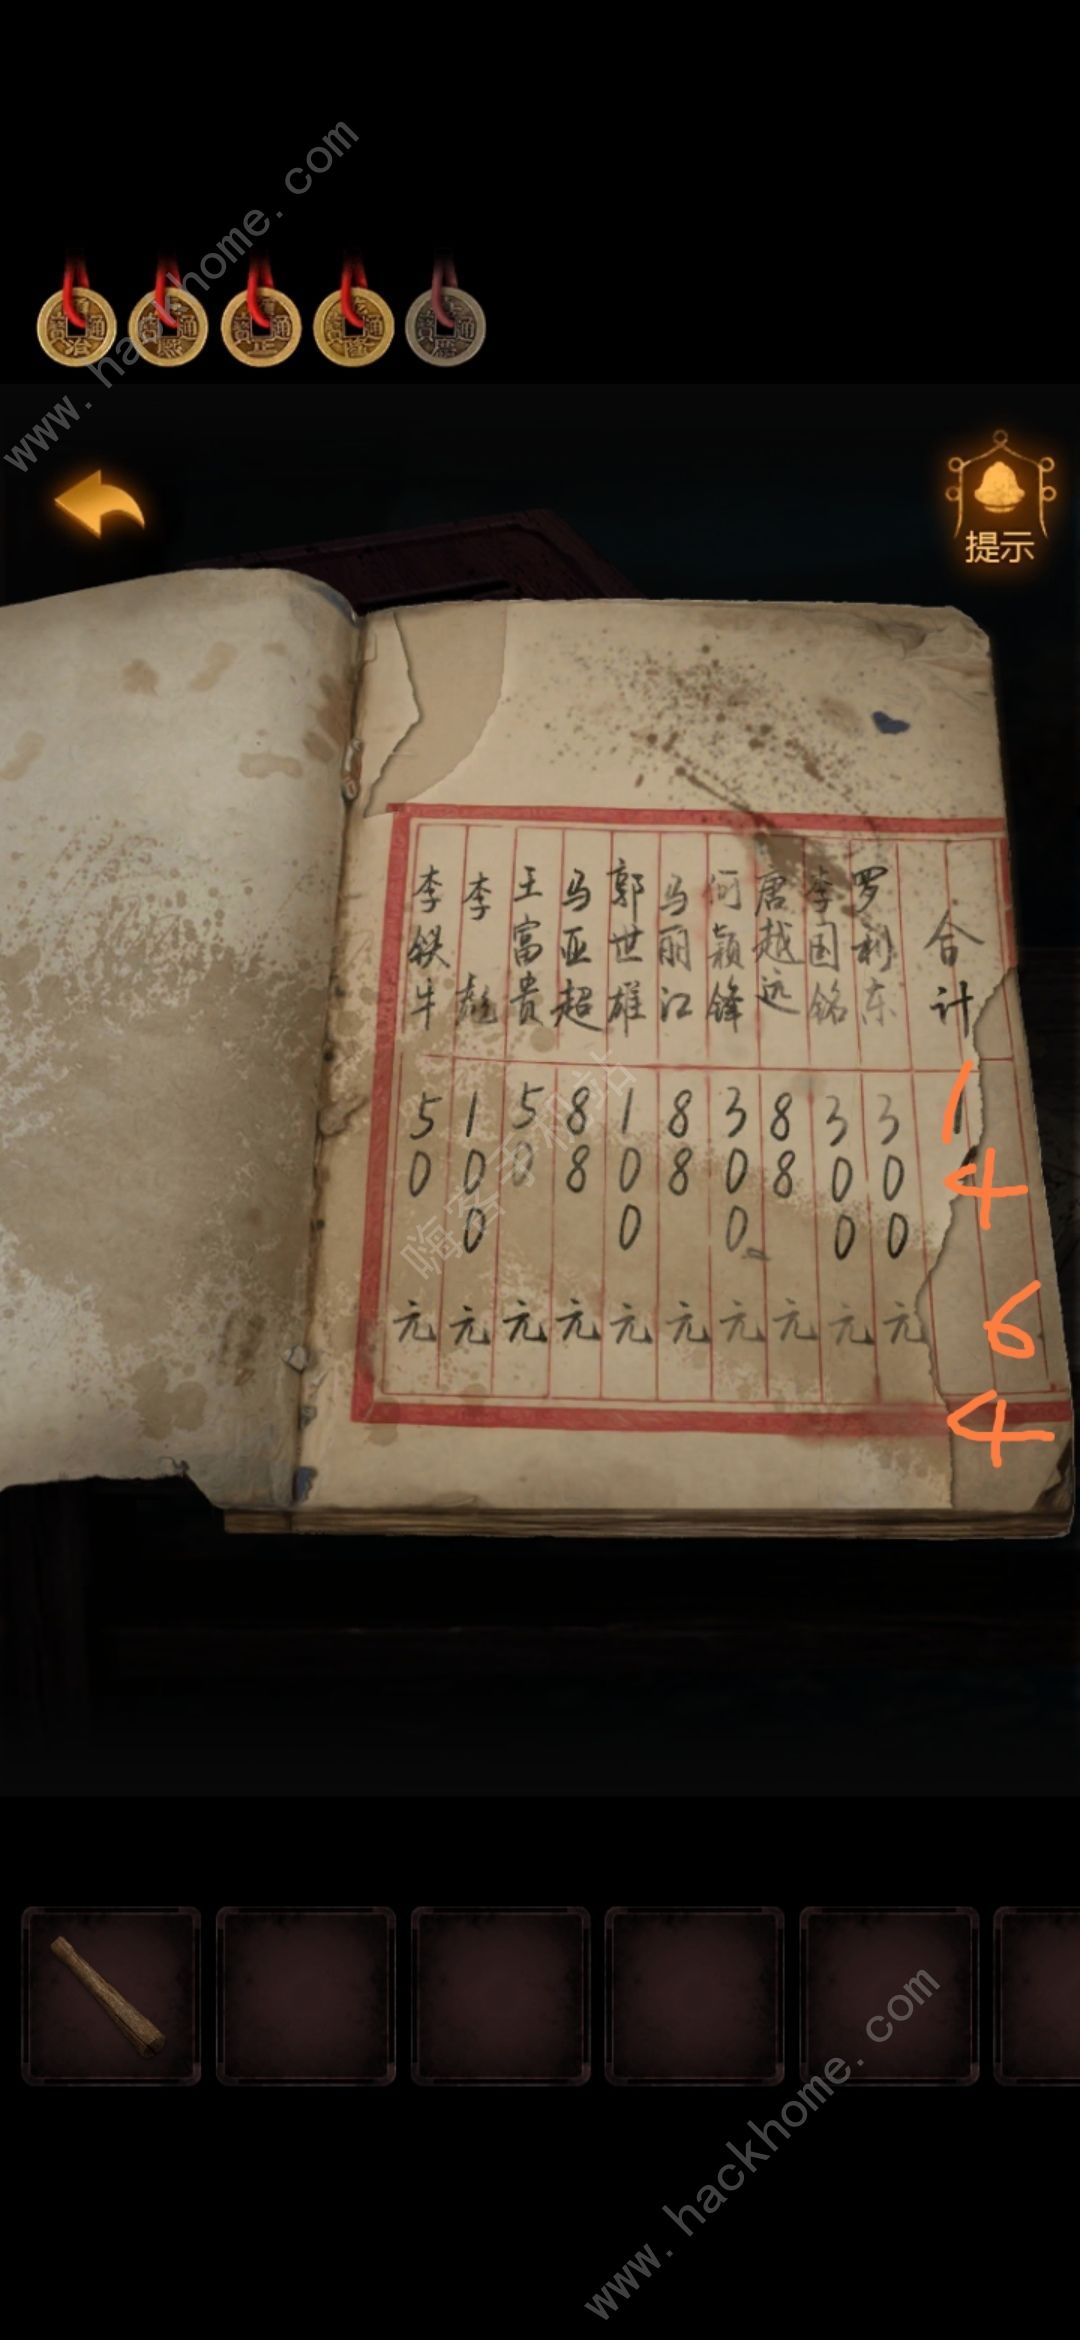 www.hackhome.com
提示
李铁牛 50元
李彪 100元
王富贵 50元
马亚超 88元
郭世雄 100元
马丽江 88元
何颖锋 300元
唐越远 88元
李国铭 300元
罗利东 300元
合计 1
1464
嗨客手机站
www.hackhome.com